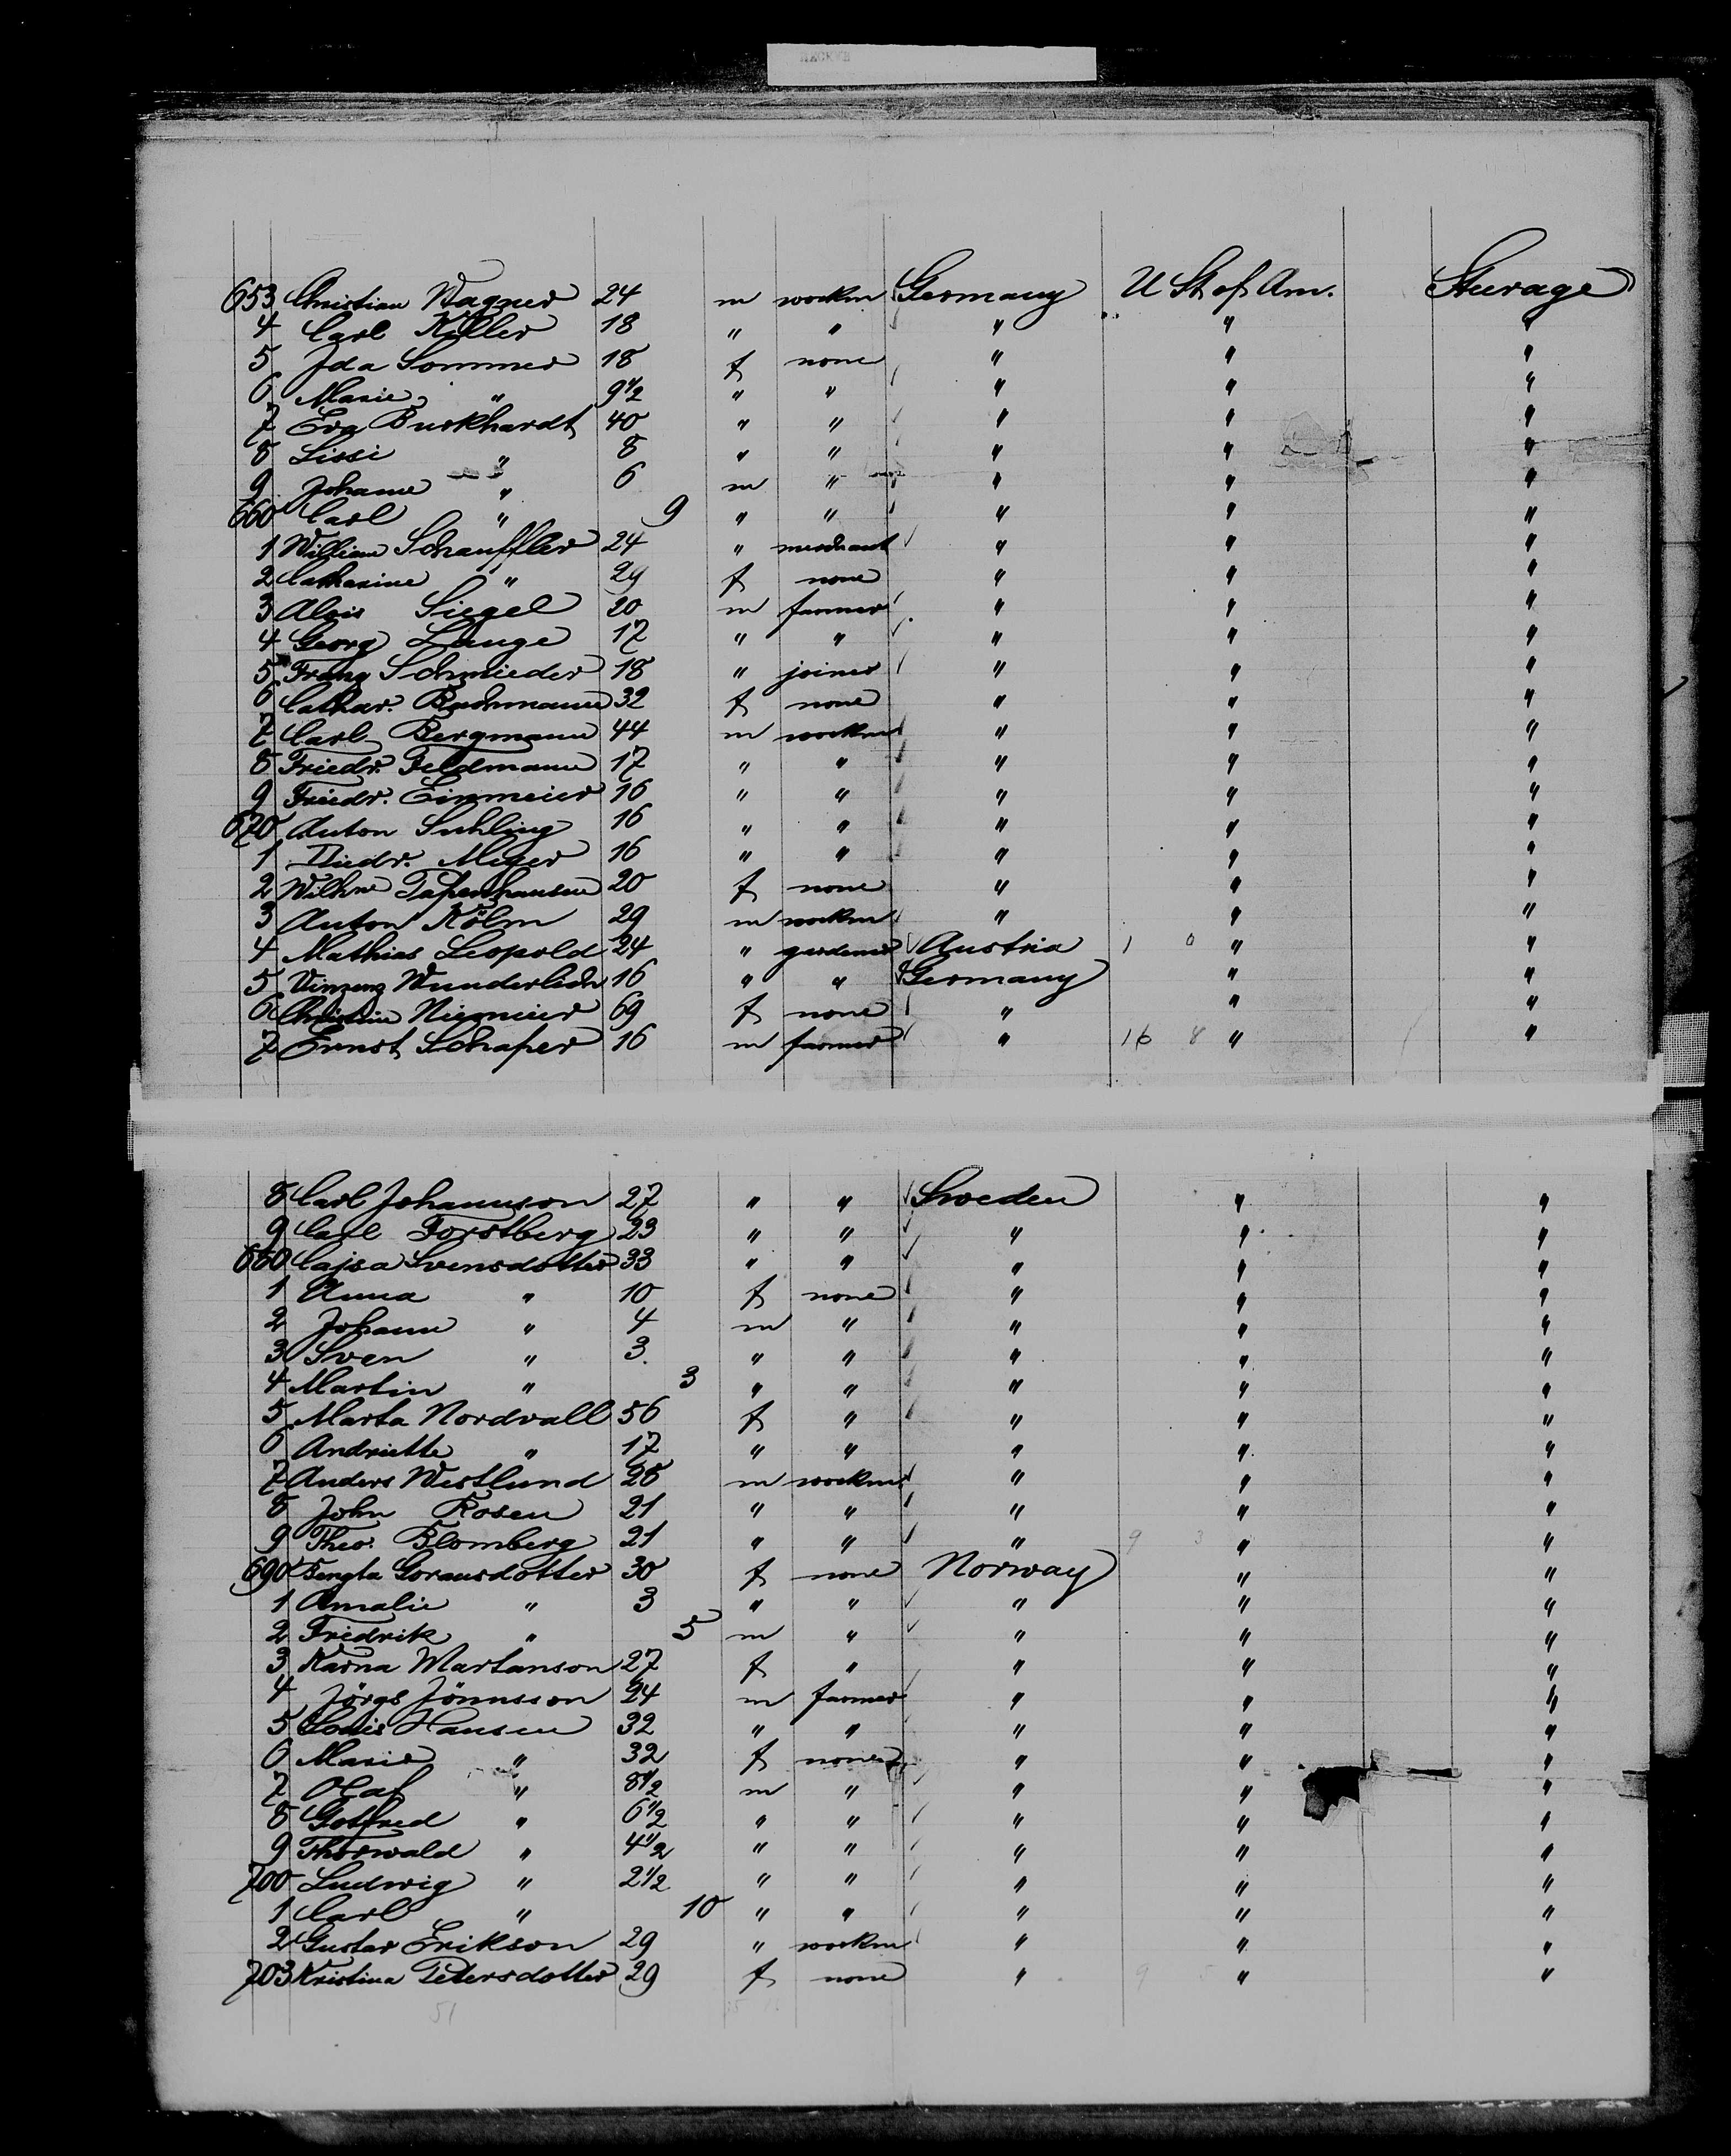 653 Christian Wagner 24 m workm Germany U St of Am. Steerage
4 Carl Keller 18 " " " " "
5 Ida Sommer 18 f none " " "
6 Marie " 9 1/2 " " " " "
7 Eva Burkhardt 40 " " " " "
8 Lissi " 8 " " " " "
9 Johann " 6 m " " " "
660 Carl " 9 " " " " "
1 William Schauffler 24 " merchant " " "
2 Catharine " 29 f none " " "
3 Alois Siegel 20 m farmer " " "
4 Georg Lange 17 " " " " "
5 Franz Schmieder 18 " joiner " " "
6 Cathar. Bachmann 32 f none " " "
7 Carl Bergmann 44 m workm " " "
8 Friedr. Feldmann 17 " " " " "
9 Friedr. Einmeier 16 " " " " "
670 Anton Suhling 16 " " " " "
1 Diedr. Meyer 16 " " " " "
2 Wilhne Tapenhausen 20 f none " " "
3 Anton Kölm 29 m workm " " "
4 Mathias Leopold 24 " gardener Austria 1 0 " "
5 Vinzenz Wunderlich 16 " " Germany " "
6 Christine Niemeier 69 f none " " "
7 Ernst Schaper 16 m farmer " 16 8 " "
8 Carl Johannson 27 " " Sweden " "
9 Carl Forstberg 23 " " " " "
680 Cajsa Svensdotter 33 " " " " "
1 Anna " 10 f none " " "
2 Johann " 4 m " " " "
3 Sven " 3. " " " " "
4 Martin " 3 " " " " "
5 Marta Nordvall 56 f " " " "
6 Andriette " 17 " " " " "
7 Anders Westlund 28 m workm " " "
8 John Rosen 21 " " " " "
9 Theo. Blomberg 21 " " " 9 3 " "
690 Bengta Goransdotter 30 f none Norway " "
1 Amalie " 3 " " " " "
2 Fredrik " 5 m " " " "
3 Karna Martanson 27 f " " " "
4 Jörgs Jönnsson 24 m farmer " " "
5 Louis Hansen 32 " " " " "
6 Marie " 32 f none " " "
7 Olaf " 8 1/2 m " " " "
8 Gotfred " 6 1/2 " " " " "
9 Thorwald " 4 1/2 " " " " "
700 Ludwig " 2 1/2 " " " " "
1 Carl " 10 " " " " "
2 Gustav Erikson 29 " workm " " "
703 Kristina Petersdotter 29 f none " 9 5 " "
51